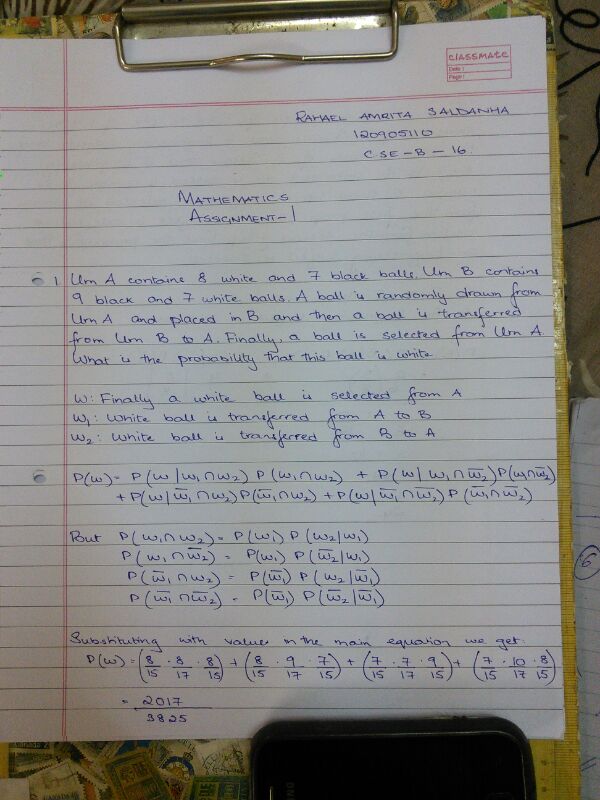 classmate
Date :
Page :
RAHAEL AMRITA SALDANHA
120905110
CSE-B-16
MATHEMATICS
ASSIGNMENT-1
1 Urn A contains 8 white and 7 black balls. Urn B contains
9 black and 7 white balls. A ball is randomly drawn from
Urn A and placed in B and then a ball is transferred
from Urn B to A. Finally, a ball is selected from Urn A.
What is the probability that this ball is white.
W: Finally a white ball is selected from A
W₁: White ball is transferred from A to B
W₂: White ball is transferred from B to A
P(W) = P(W|W₁∩W₂) P(W₁∩W₂) + P(W|W₁∩W̅₂) P(W₁∩W̅₂)
+ P(W|W̅₁∩W₂) P(W̅₁∩W₂) + P(W|W̅₁∩W̅₂) P(W̅₁∩W̅₂)
But P(W₁∩W₂) = P(W₁) P(W₂|W₁)
P(W₁∩W̅₂) = P(W₁) P(W̅₂|W₁)
P(W̅₁∩W₂) = P(W̅₁) P(W₂|W̅₁)
P(W̅₁∩W̅₂) = P(W̅₁) P(W̅₂|W̅₁)
Substituting with values in the main equation we get:
P(W) = (8/15 · 8/17 · 8/15) + (8/15 · 9/17 · 7/15) + (7/15 · 7/17 · 9/15) + (7/15 · 10/17 · 8/15)
= 2017/3825
6
SAMSUNG